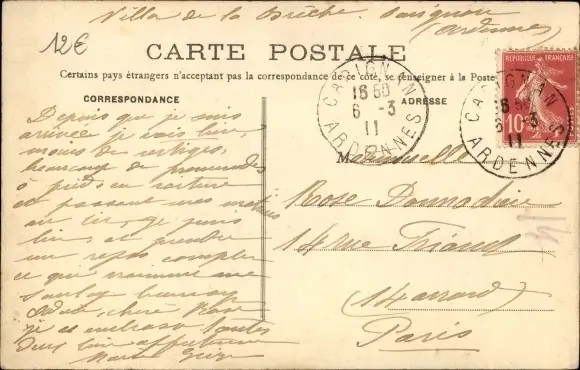 Villa de la Brèche. Carignan
(Ardennes)
12€
CARTE POSTALE
Certains pays étrangers n'acceptent pas la correspondance de ce côté, se renseigner à la Poste
CORRESPONDANCE
ADRESSE
CARIGNAN
18 50
6 - 3
11
ARDENNES
RÉPUBLIQUE FRANÇAISE
10
CARIGNAN
18 50
6 - 3
11
ARDENNES
Depuis que je suis
arrivée je vais bien,
moins de vertiges,
beaucoup de promenades
à pied en voiture
en passant mes
au lit, je puis
lire, et prendre
un repos complet
ce qui vraiment me
soulage beaucoup
chère Rose
je embrasse toutes
deux bien affectueuse
Marie
Mademoiselle
Rose Donnadieu
14 rue
(14 arrond)
Paris